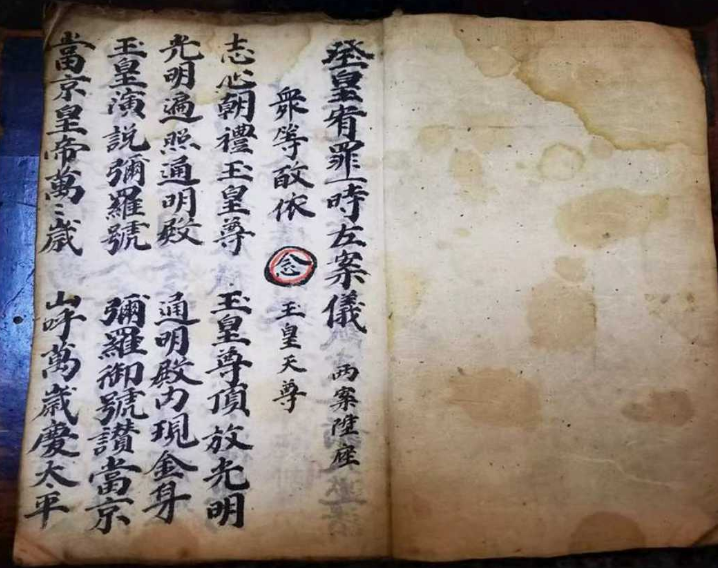 玉皇宥罪一時左案儀 两案陞座
衆等皈依 念 玉皇天尊
志心朝禮玉皇尊 玉皇尊頂放光明
光明遍照通明殿 通明殿内現金身
玉皇演説彌羅號 彌羅御號讃當京
當京皇帝萬〻歲 山呼萬歲慶太平